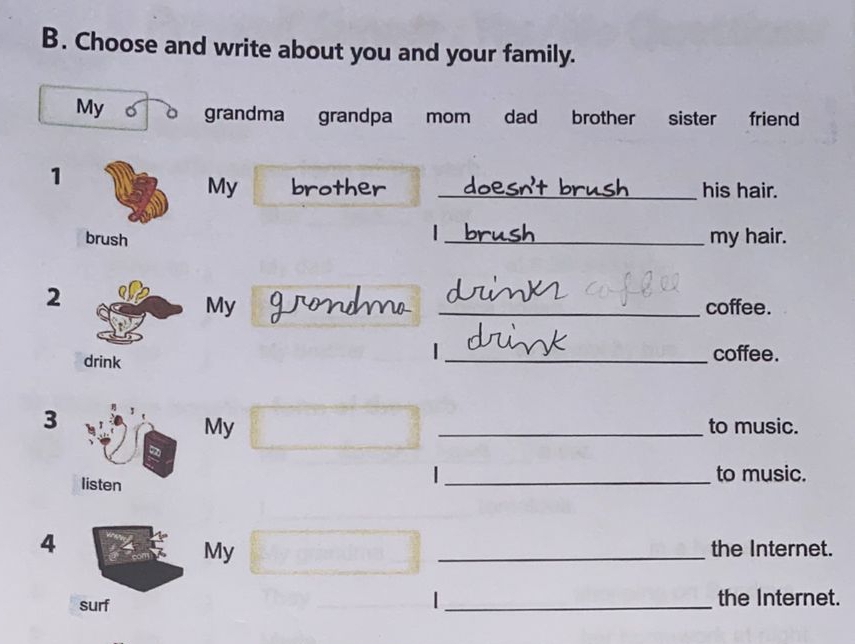 B. Choose and write about you and your family.
My grandma grandpa mom dad brother sister friend
1 My brother doesn't brush his hair.
brush I brush my hair.
2 My grandma drinks coffee coffee.
drink I drink coffee.
3 My to music.
listen I to music.
4 My the Internet.
surf I the Internet.